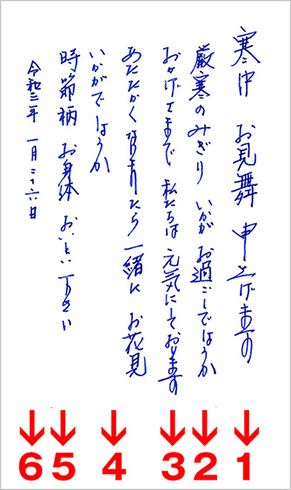 寒中 お見舞 申上げます
厳寒のみぎり いかが お過ごしでしょうか
おかげさまで 私たちは 元気にしております
あたたかくなりましたら 一緒に お花見
いかがでしょうか
時節柄 お身体 おいとい下さい
令和三年 一月二十六日
6 5 4 3 2 1